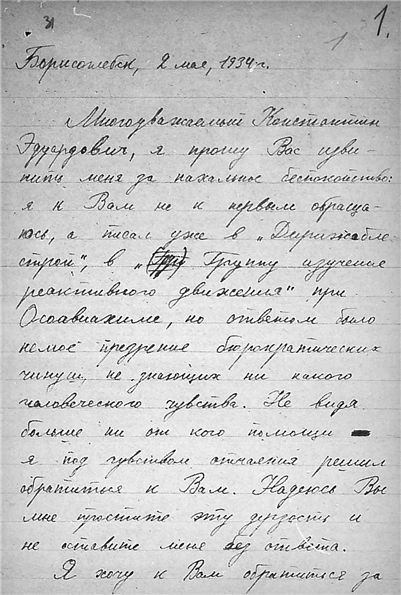 31
1
1.
Борисоглебск, 2 мая, 1934 г.
Многоуважаемый Константин
Эдуардович, я прошу Вас изви-
нить меня за нахальное беспокойство:
я к Вам не к первым обраща-
юсь, а писал уже в „Дирижабле-
строй", в „ Группу изучения
реактивного движения" при
Осоавиахиме, но ответом было
немое презрение бюрократических
чинуш, не знающих ни какого
человеческого чувства. Не видя
больше ни от кого помощи
я под чувством отчаяния решил
обратиться к Вам. Надеюсь Вы
мне простите эту дерзость и
не оставите меня без ответа.
Я хочу к Вам обратиться за